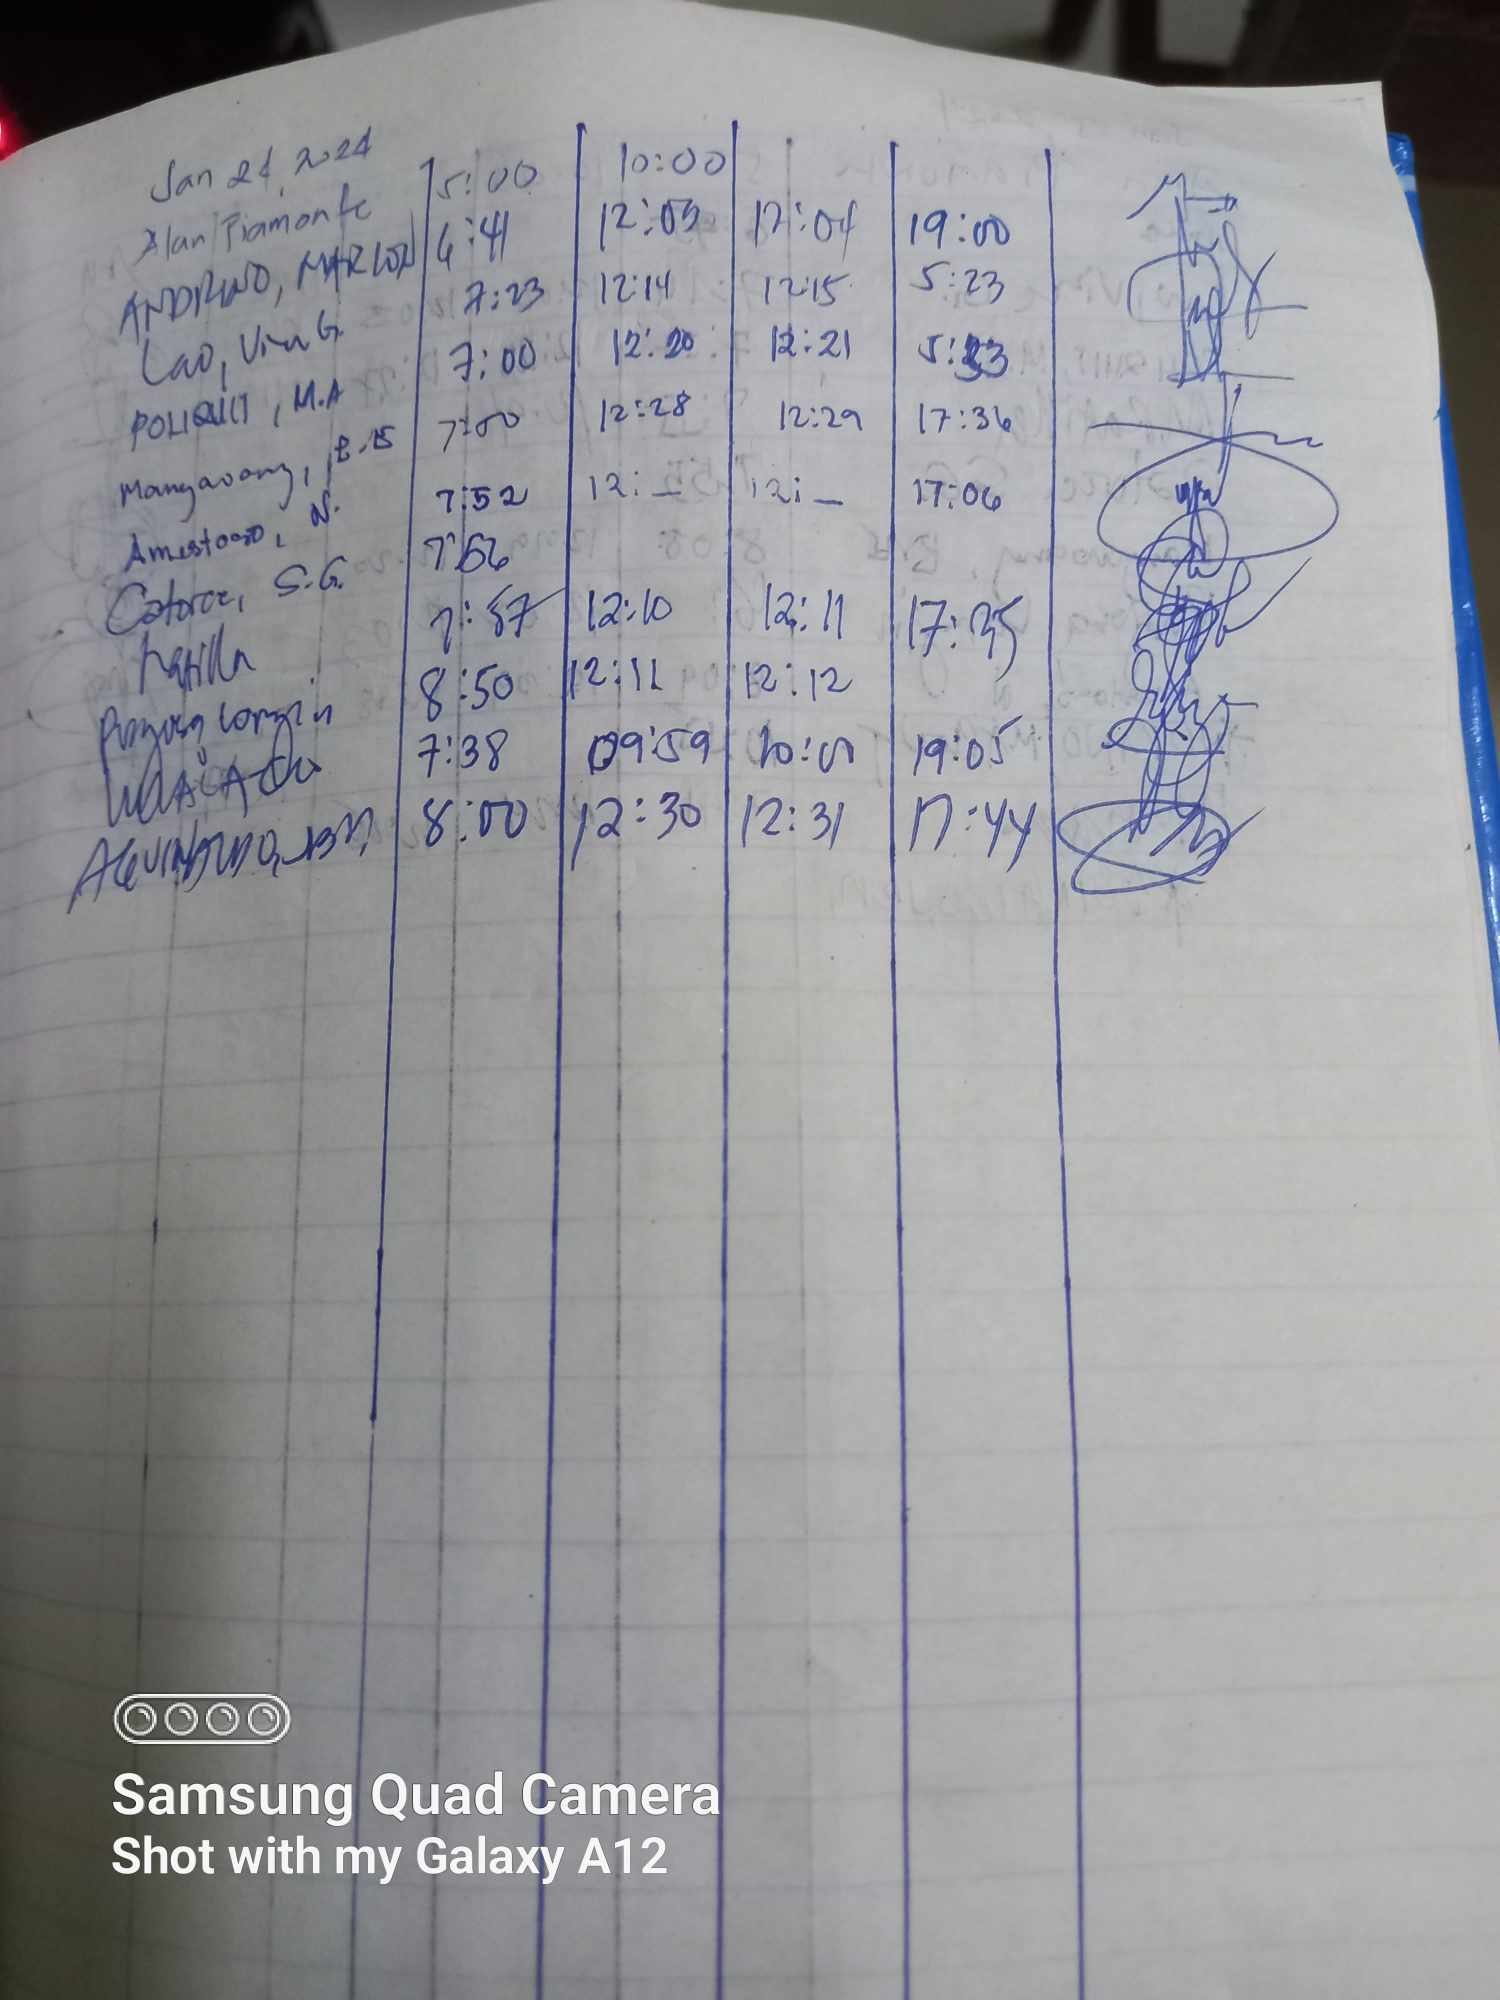 Jan 24, 2024
Alan Piamonte 5:00 10:00
ANDRINO, MARLON 6:41 12:03 12:04 19:00
Lao, Vin G. 7:23 12:14 12:15 5:23
POLIQUIT, M.A 7:00 12:20 12:21 5:33
Mangavang, B.B 7:00 12:28 12:29 17:36
Amestoso, N. 7:52 12:_ 12:_ 17:06
Catorce, S.G. 7:56
7:57 12:10 12:11 17:35
8:50 12:11 12:12
7:38 09:59 10:01 19:05
8:00 12:30 12:31 17:44
Samsung Quad Camera
Shot with my Galaxy A12